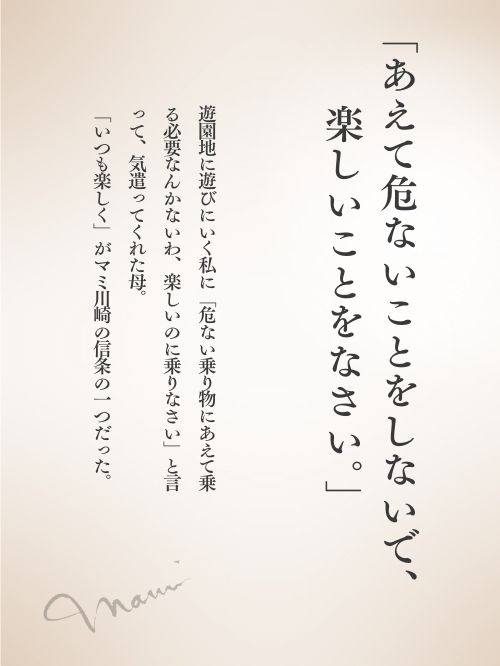 「あえて危ないことをしないで、
楽しいことをなさい。」
遊園地に遊びにいく私に「危ない乗り物にあえて乗
る必要なんかないわ、楽しいのに乗りなさい」と言
って、気遣ってくれた母。
「いつも楽しく」がマミ川崎の信条の一つだった。
mami